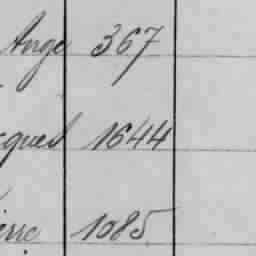 Ange 367
cques 1644
ierre 1085